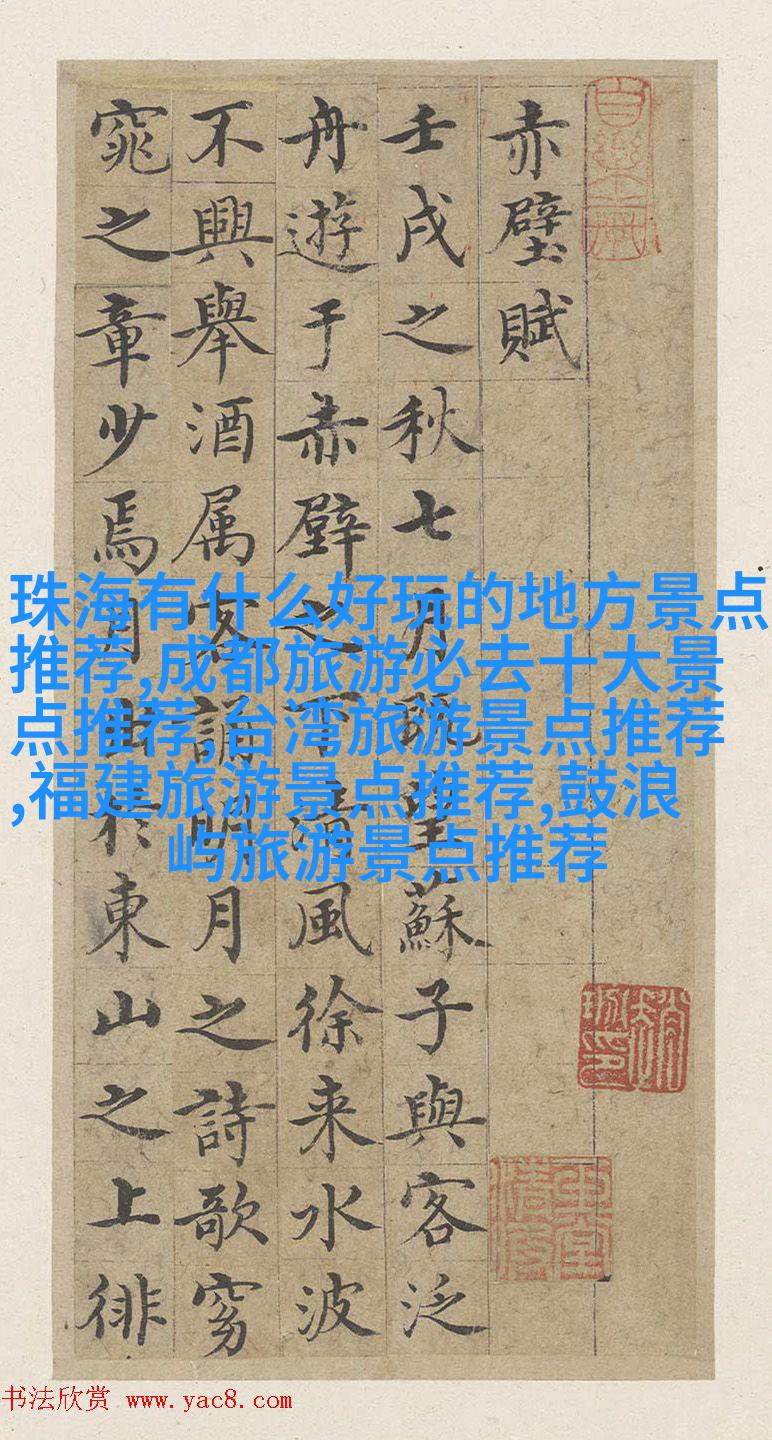 赤壁賦
壬戌之秋七月既望蘇子與客泛
舟遊于赤壁之下清風徐来水波
不興舉酒属客誦明月之詩歌窈
窕之章少焉月出於東山之上徘
珠海有什么好玩的地方景点
推荐,成都旅游必去十大景
点推荐,台湾旅游景点推荐
,福建旅游景点推荐,鼓浪
屿旅游景点推荐
书法欣赏 www.yac8.com